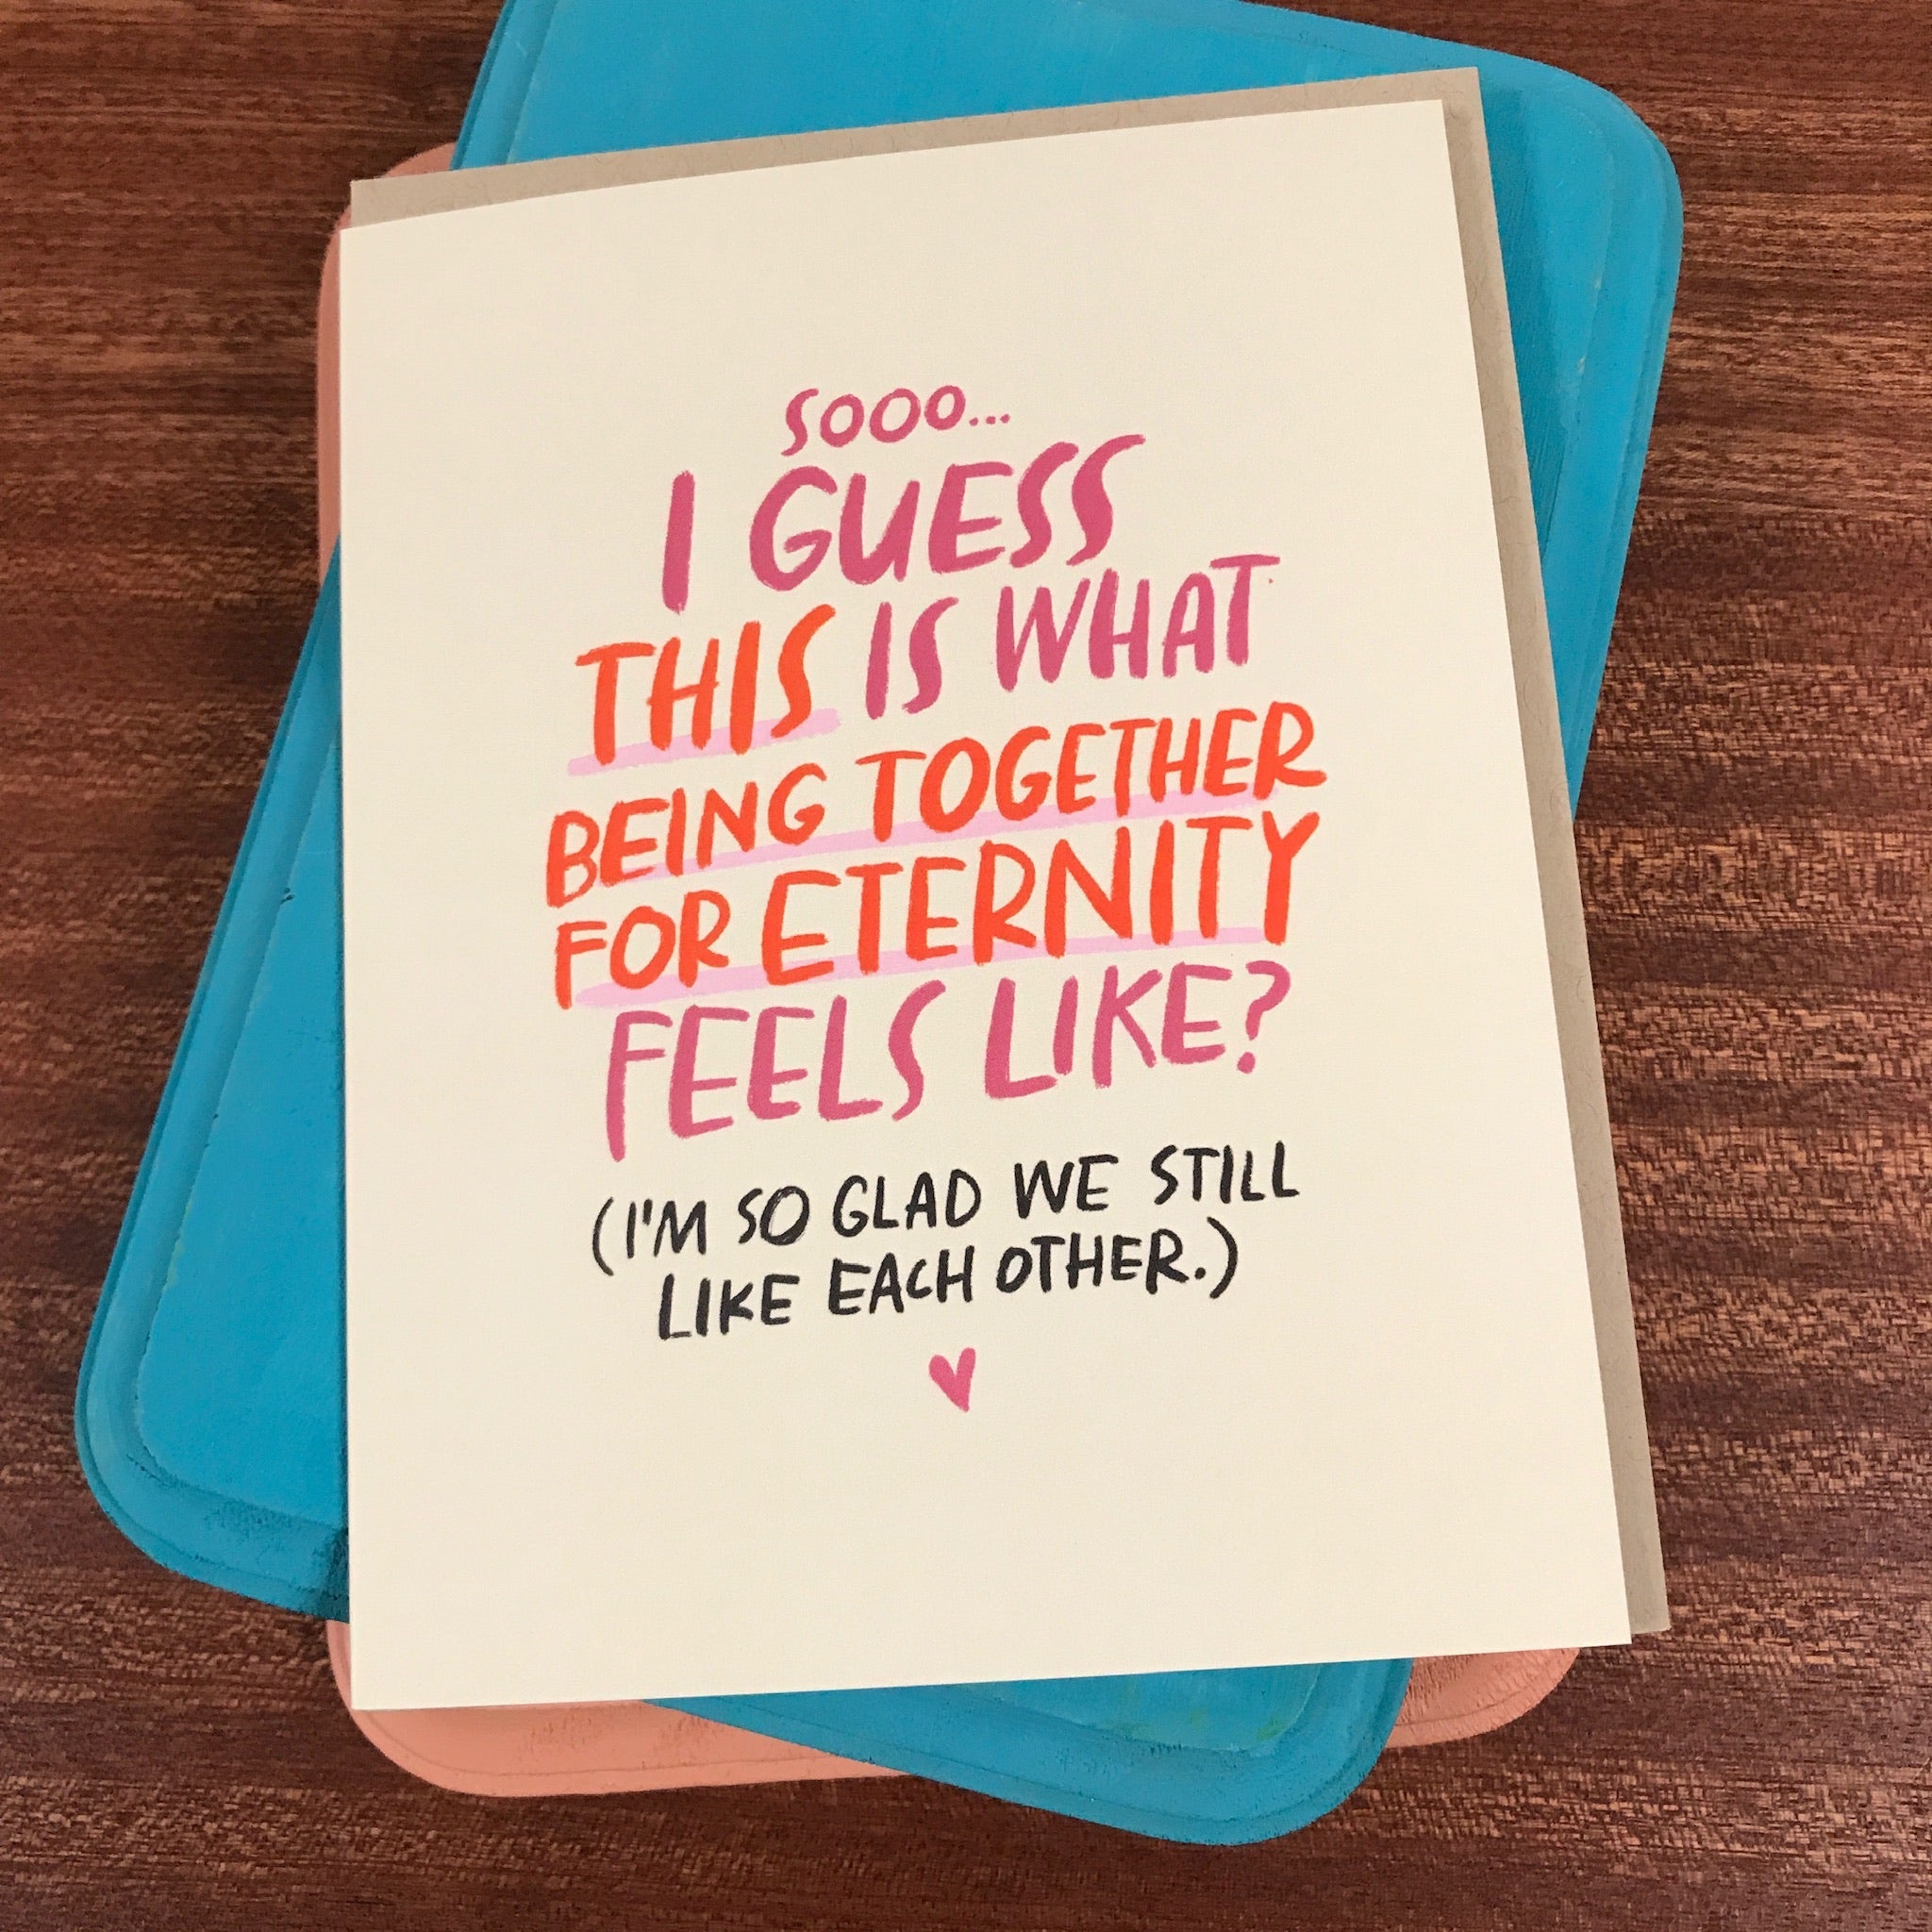 SOOO...
I GUESS
THIS IS WHAT
BEING TOGETHER
FOR ETERNITY
FEELS LIKE?
(I'M SO GLAD WE STILL
LIKE EACH OTHER.)